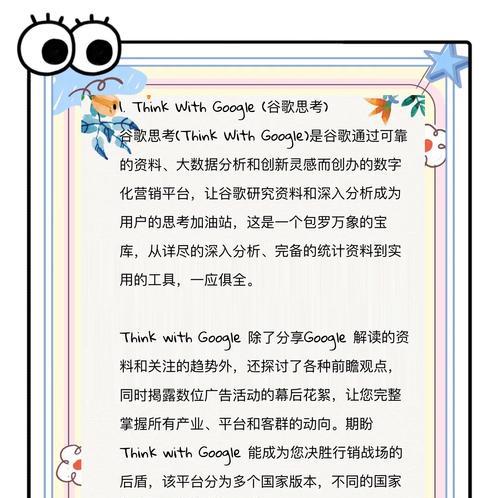 1. Think With Google (谷歌思考)
谷歌思考(Think With Google)是谷歌通过可靠
的资料、大数据分析和创新灵感而创办的数字
化营销平台，让谷歌研究资料和深入分析成为
用户的思考加油站，这是一个包罗万象的宝
库，从详尽的深入分析、完备的统计资料到实
用的工具，一应俱全。
Think with Google 除了分享Google 解读的资
料和关注的趋势外，还探讨了各种前瞻观点，
同时揭露数位广告活动的幕后花絮，让您完整
掌握所有产业、平台和客群的动向。期盼
Think with Google 能成为您决胜行销战场的
后盾，该平台分为多个国家版本，不同的国家